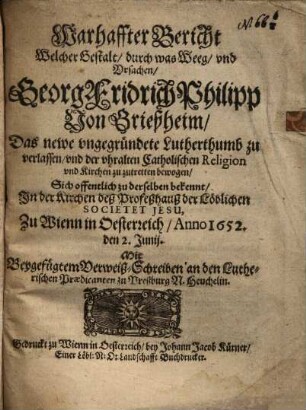 Warhaffter Bericht
Welcher Gestalt/ durch was Weeg/ vnd
Vrsachen/
Georg Fridrich Philipp
Von Grießheim/
Das newe vngegründete Lutherthumb zu
verlassen/ vnd der vhralten Catholischen Religion
vnd Kirchen zu zutretten bewogen/
Sich offentlich zu derselben bekennt/
In der Kirchen deß Profeßhauß der Löblichen
SOCIETET JESU,
Zu Wienn in Oesterreich/ Anno 1652.
den 2. Junij.
Mit
Beygefügtem Verweiß-Schreiben an den Luthe-
rischen Prædicanten zu Preßburg N. Heuchelin.
Gedruckt zu Wienn in Oesterreich/ bey Johann Jacob Kürner/
Einer Löbl: N: Oe: Landschafft Buchdrucker.